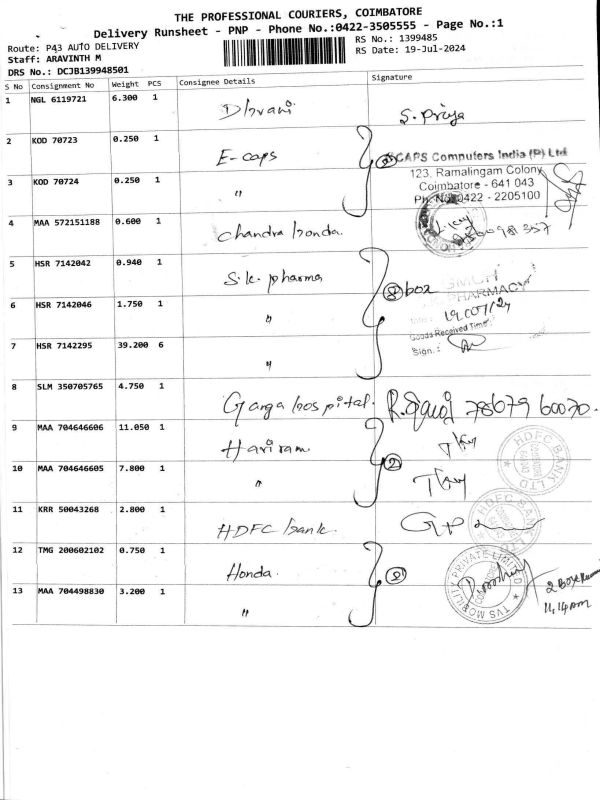 THE PROFESSIONAL COURIERS, COIMBATORE
Delivery Runsheet - PNP - Phone No.:0422-3505555 - Page No.:1
Route: P43 AUTO DELIVERY
RS No.: 1399485
Staff: ARAVINTH M
RS Date: 19-Jul-2024
DRS No.: DCJB139948501
S No Consignment No Weight PCS Consignee Details Signature
1 NGL 6119721 6.300 1 Dhvani S. Priya
2 KOD 70723 0.250 1 E-caps
SCAPS Computers India (P) Ltd
123, Ramalingam Colony
Coimbatore - 641 043
Ph. No. 0422 - 2205100
3 KOD 70724 0.250 1 "
4 MAA 572151188 0.600 1 Chandra honda.
5 HSR 7142042 0.940 1 S.k. pharma 8 box
PHARMACY
19/07/24
Goods Received Time
Sign.:
6 HSR 7142046 1.750 1 "
7 HSR 7142295 39.200 6 "
8 SLM 350705765 4.750 1 Ganga hospital. 78679 60070.
9 MAA 704646606 11.050 1 Hariram
10 MAA 704646605 7.800 1 " 2
HDFC BANK LTD
11 KRR 50043268 2.800 1 HDFC bank.
HDFC BANK
12 TMG 200602102 0.750 1 Honda
TVS MOBILITY PRIVATE LIMITED
2 Box
11.14 AM
13 MAA 704498830 3.200 1 "